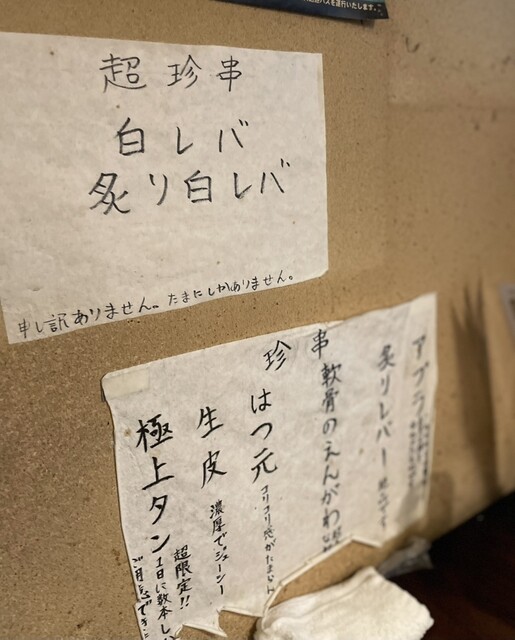 超珍串
白レバ
炙り白レバ
申し訳ありません。たまにしかありません。
アブラ
炙りレバー
串 軟骨のえんがわ
珍 はつ元 コリコリ感がたまらん
生皮 濃厚でジューシー
極上タン 超限定!!
1日に数本し